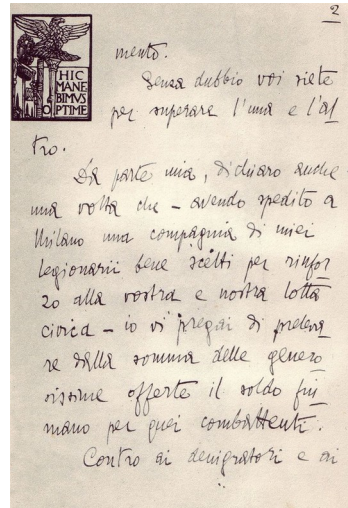 2
HIC
MANE
BIMVS
OPTIME
mento.
Senza dubbio voi siete
per superare l'una e l'al
tro.
Da parte mia, dichiaro anche
una volta che – avendo spedito a
Milano una compagnia di miei
legionarii bene scelti per rinfor
zo alla vostra e nostra lotta
civica – io vi pregai di preleva
re dalla somma delle genero
sissime offerte il soldo fiu
mano per quei combattenti.
Contro ai denigratori e ai